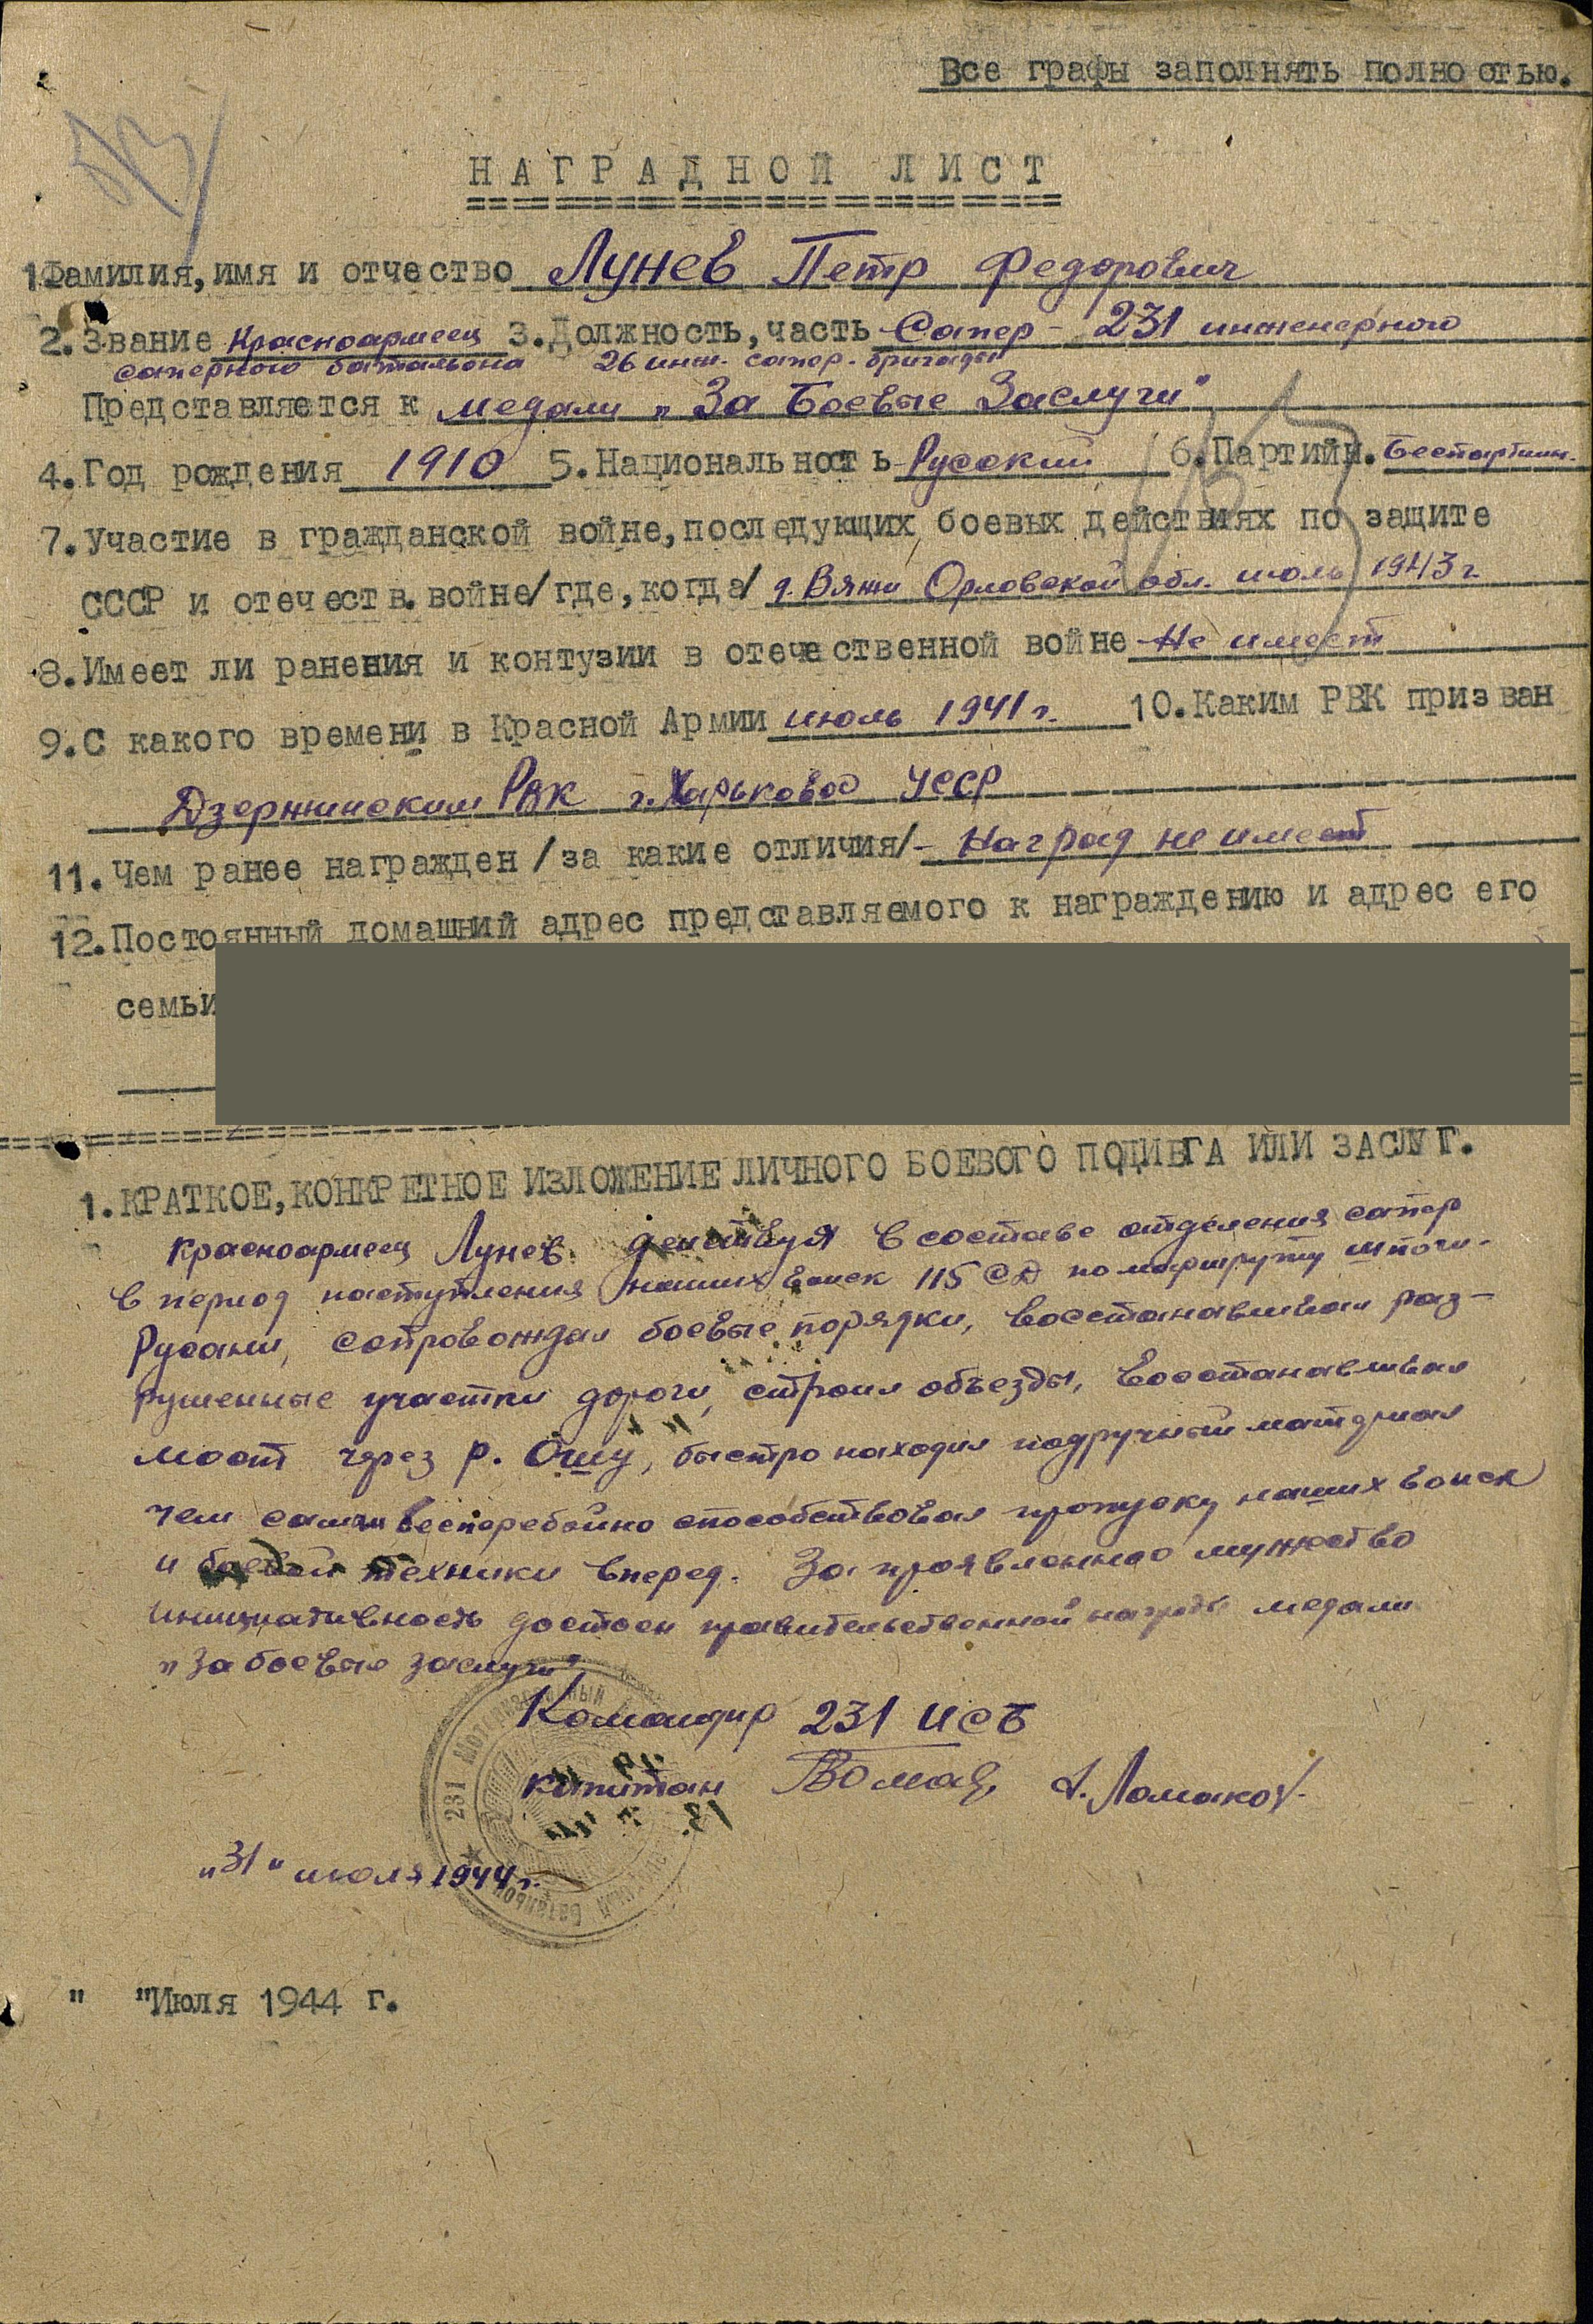 Все графы заполнять полностью.
НАГРАДНОЙ ЛИСТ
1 Фамилия, имя и отчество Лунев Петр Федорович
2. Звание Красноармеец 3. Должность, часть Сапер - 231 инженерного
саперного батальона 26 инж. сапер. бригады
Представляется к медали "За Боевые Заслуги"
4. Год рождения 1910 5. Национальность Русский 6. Партийн. Беспартийн.
7. Участие в гражданской войне, последующих боевых действиях по защите
СССР и отечеств. войне /где, когда/ д. Вяжи Орловской обл. июль 1943 г.
8. Имеет ли ранения и контузии в отечественной войне Не имеет
9. С какого времени в Красной Армии июль 1941 г. 10. Каким РВК призван
Дзержинским РВК г. Харьково УССР
11. Чем ранее награжден /за какие отличия/- Наград не имеет
12. Постоянный домашний адрес представляемого к награждению и адрес его
семьи
1. КРАТКОЕ, КОНКРЕТНОЕ ИЗЛОЖЕНИЕ ЛИЧНОГО БОЕВОГО ПОДИВГА ИЛИ ЗАСЛУГ.
Красноармеец Лунев. действуя в составе отделения сапер
в период наступления наших войск 115 СД по маршруту
Русаки, сопровождал боевые порядки, восстанавливал раз-
рушенные участки дороги, строил объезды, восстанавливал
мост через р. Ошу, быстро находил подручный материал
чем самым бесперебойно способствовал пропуску наших войск
и боевой техники вперед. За проявленное мужество
инициативность достоен правительственной награды медали
"За боевые заслуги"
Командир 231 ИСБ
капитан А. Ломаков.
"31" июля 1944 г.
231 Моторизованный
батальон
" "Июля 1944 г.